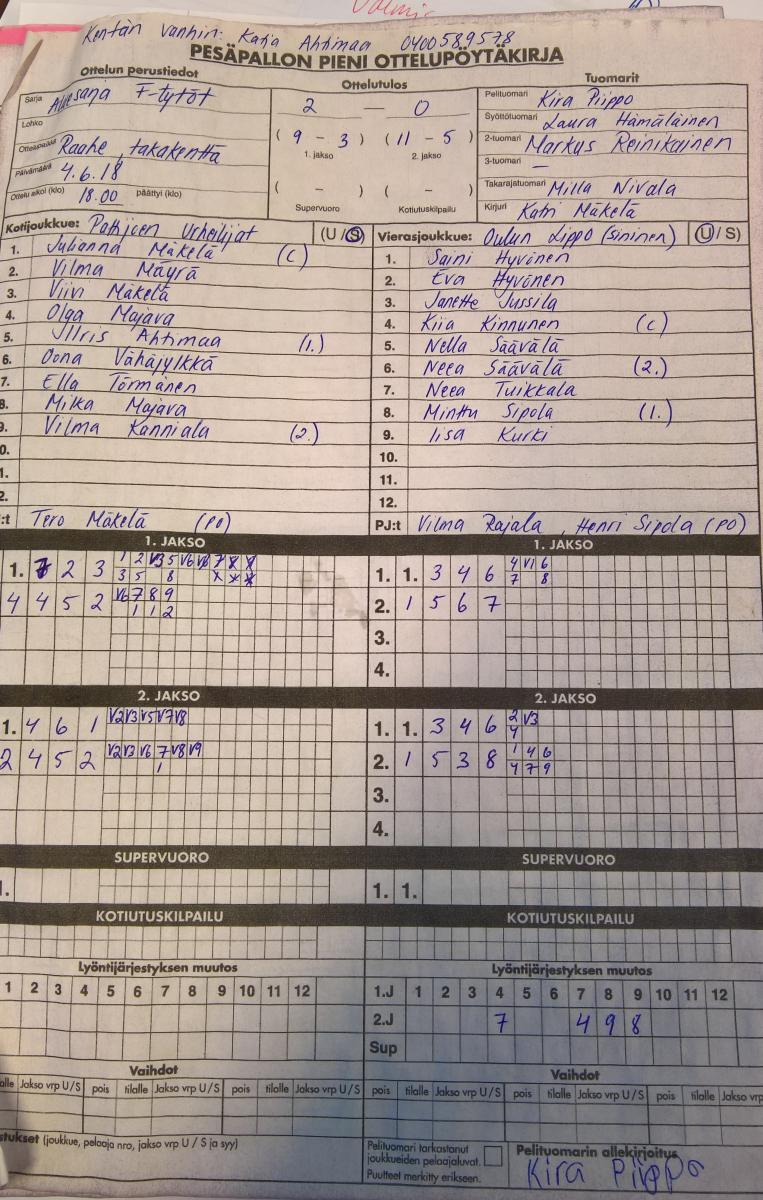 Kentän vanhin: Katja Ahtimaa 0400589578
PESÄPALLON PIENI OTTELUPÖYTÄKIRJA
Ottelun perustiedot
Sarja Aluesarja F-tytöt
Lohko
Ottelupaikka Raahe, takakenttä
Päivämäärä 4.6.18
Ottelu alkoi (klo) 18.00 päättyi (klo)
Ottelutulos
2 — 0
( 9 - 3 ) ( 11 - 5 )
1. jakso 2. jakso
( - ) ( - )
Supervuoro Kotiutuskilpailu
Tuomarit
Pelituomari Kira Piippo
Syöttötuomari Laura Hämäläinen
2-tuomari Markus Reinikainen
3-tuomari —
Takarajatuomari Milla Nivala
Kirjuri Katri Mäkelä
Kotijoukkue: Pattijoen Urheilijat (U / S)
1. Julianna Mäkelä (C)
2. Vilma Mäyrä
3. Viivi Mäkelä
4. Olga Majava
5. Ahtimaa (1.)
6. Oona Vähäjylkkä
7. Ella Törmänen
8. Milka Majava
9. Vilma Kanniala (2.)
0.
1.
2.
:t Tero Mäkelä (PO)
Vierasjoukkue: Oulun Lippo (sininen) (U / S)
1. Saini Hyvönen
2. Eva Hyvönen
3. Janette Jussila
4. Kiia Kinnunen (c)
5. Nella Säävälä
6. Neea Säävälä (2.)
7. Neea Tuikkala
8. Minttu Sipola (1.)
9. Iisa Kurki
10.
11.
12.
PJ:t Vilma Rajala, Henri Sipola (PO)
1. JAKSO
1. 2 3
4 4 5 2 V6 7 8 9
1 1 2
1. JAKSO
1. 1. 3 4 6 4 V1 6
7 8
2. 1 5 6 7
3.
4.
2. JAKSO
1. 4 6 1 V2 V3 V5 V7 V8
2 4 5 2 V2 V3 V6 7 V8 V9
1
2. JAKSO
1. 1. 3 4 6 2 V3
4
2. 1 5 3 8 1 4 6
4 7 9
3.
4.
SUPERVUORO
1.
SUPERVUORO
1. 1.
KOTIUTUSKILPAILU
KOTIUTUSKILPAILU
Lyöntijärjestyksen muutos
1 2 3 4 5 6 7 8 9 10 11 12
Lyöntijärjestyksen muutos
1.J 1 2 3 4 5 6 7 8 9 10 11 12
2.J 7 4 9 8
Sup
Vaihdot
alle Jakso vrp U/S pois tilalle Jakso vrp U/S pois tilalle Jakso vrp U/S
Vaihdot
pois tilalle Jakso vrp U/S pois tilalle Jakso vrp U/S pois tilalle Jakso vrp
stukset (joukkue, pelaaja nro, jakso vrp U / S ja syy)
Pelituomari tarkastanut
joukkueiden pelaajaluvat.
Puutteet merkitty erikseen.
Pelituomarin allekirjoitus
Kira Piippo